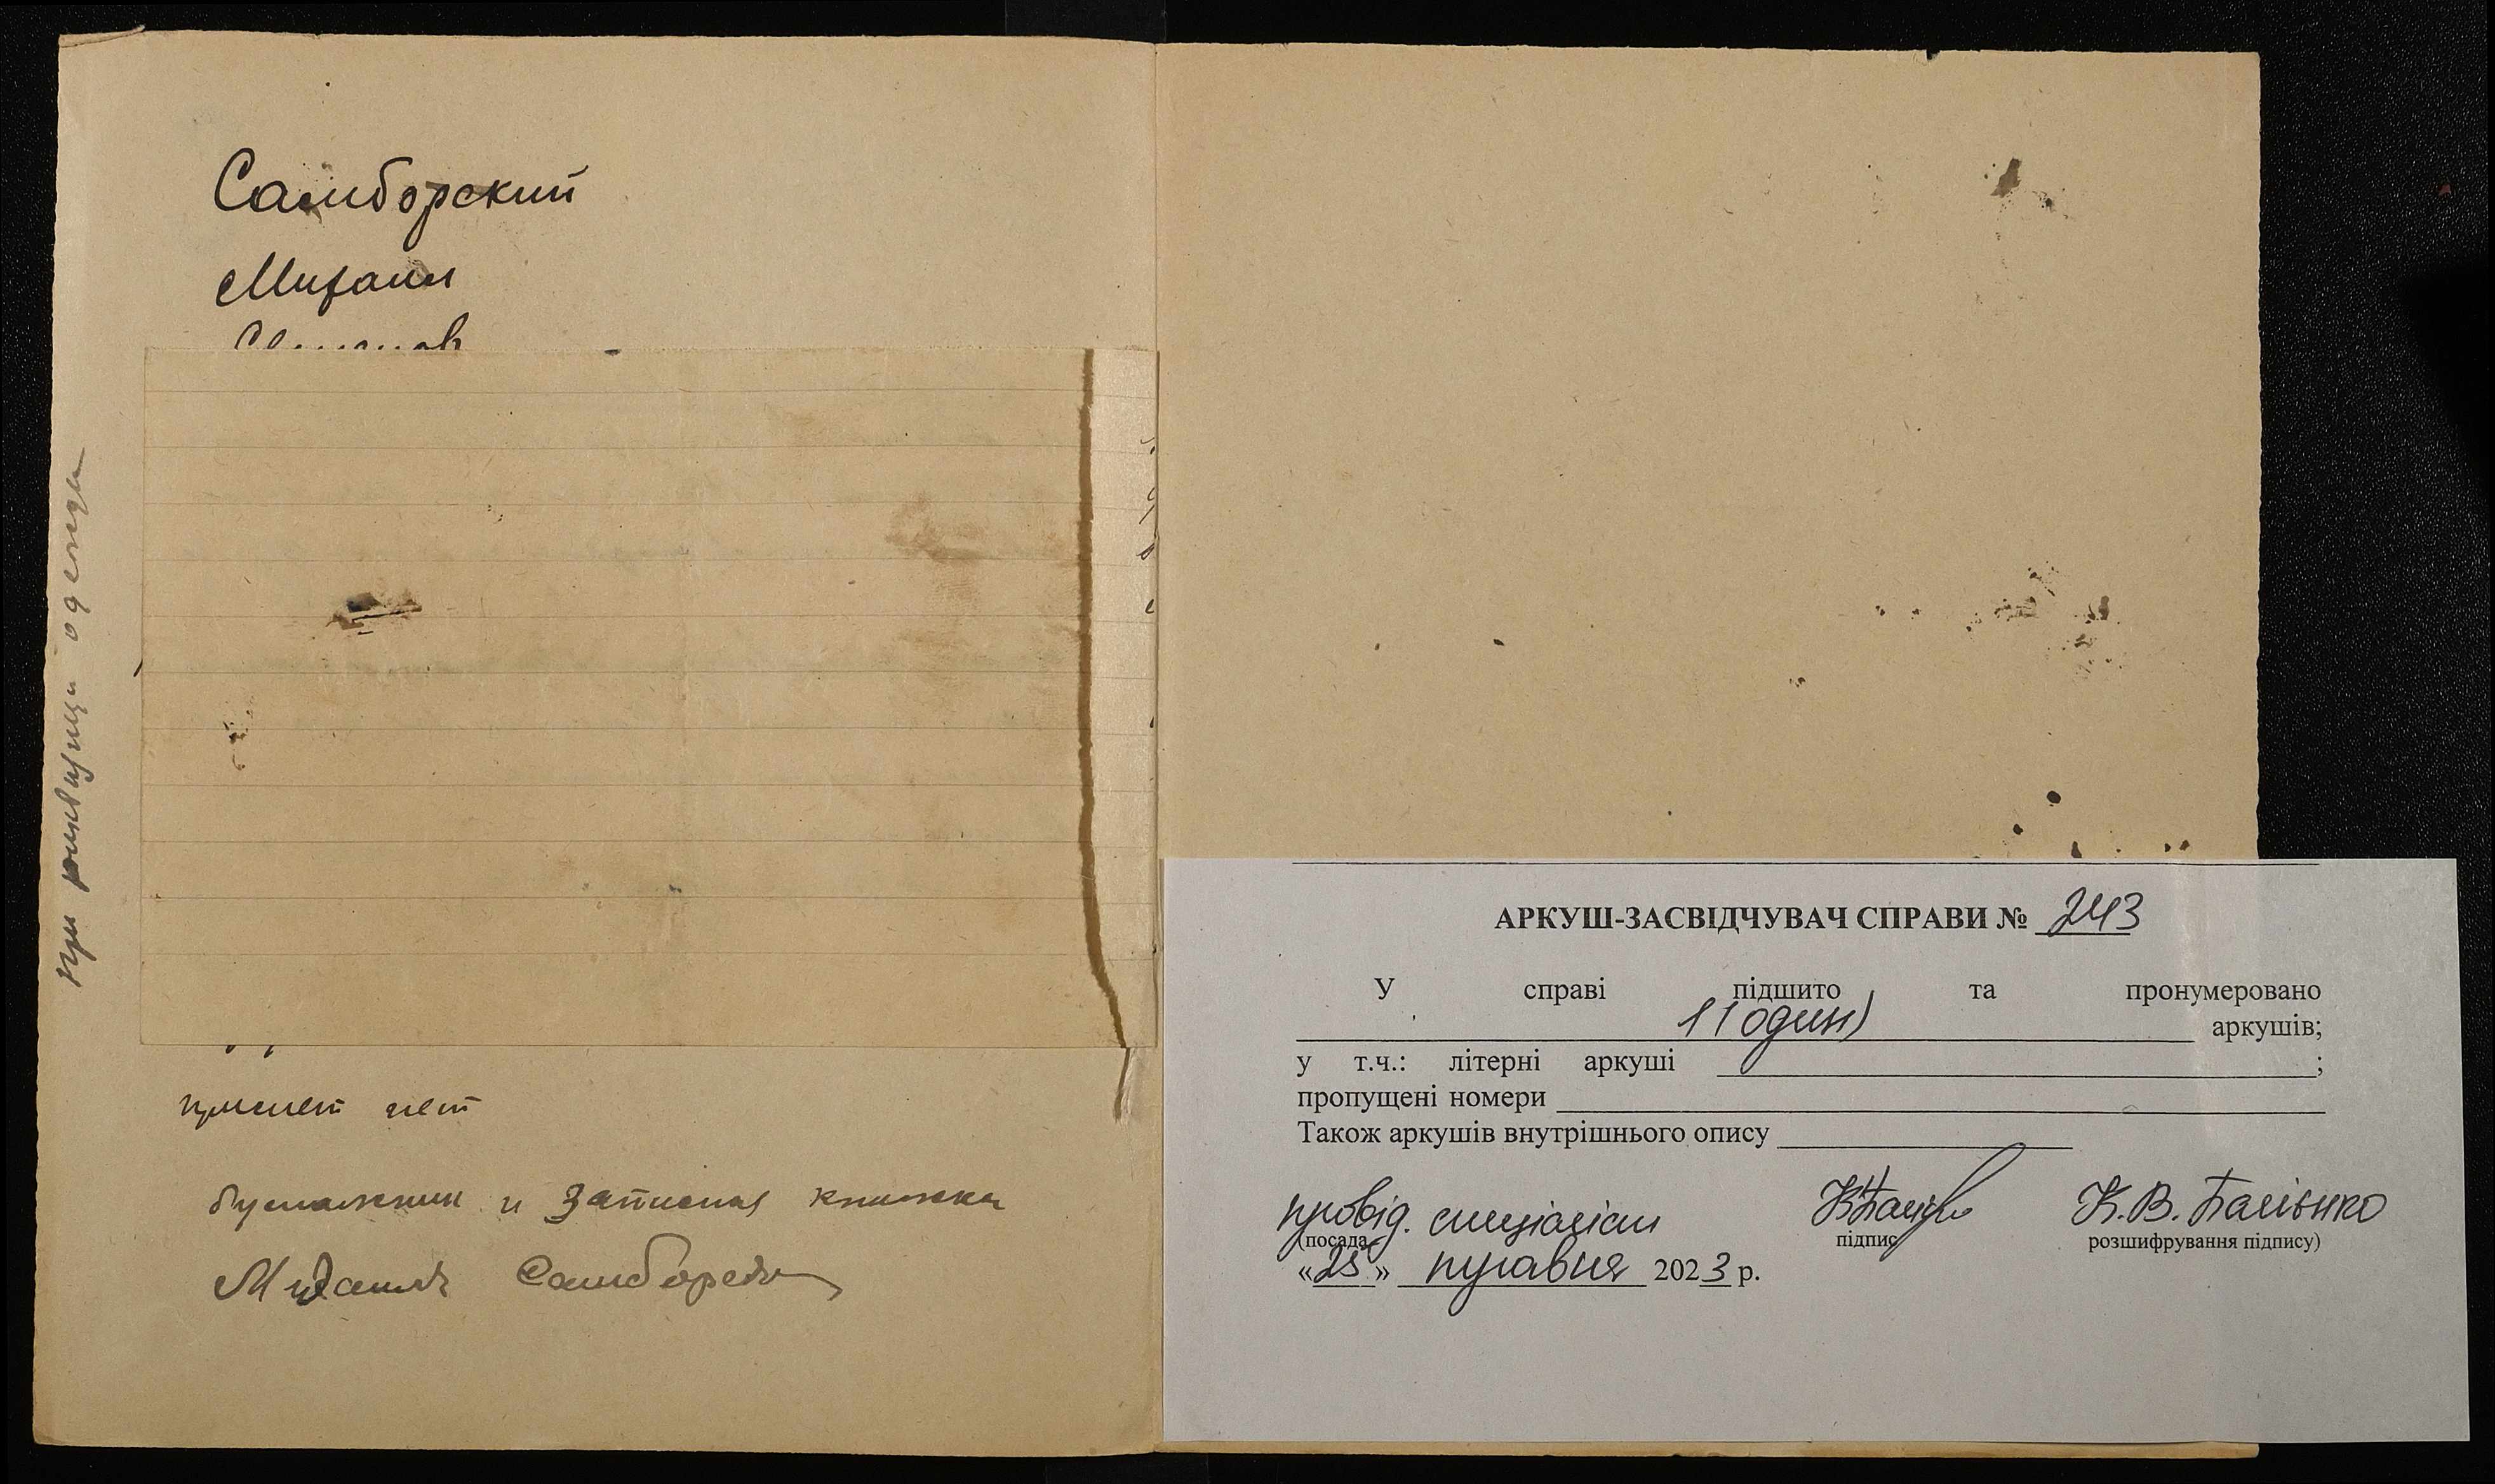 Самборский
Михаил
при ликвизиции одежды
примет нет
бумажник и Записная книжка
Михаил Самборский
АРКУШ-ЗАСВІДЧУВАЧ СПРАВИ № 243
У справі підшито та пронумеровано
1 (один) аркушів;
у т.ч.: літерні аркуші ;
пропущені номери
Також аркушів внутрішнього опису
провід. спеціаліст К.В. Балівнко
(посада підпис розшифрування підпису)
«25» травня 2023 р.